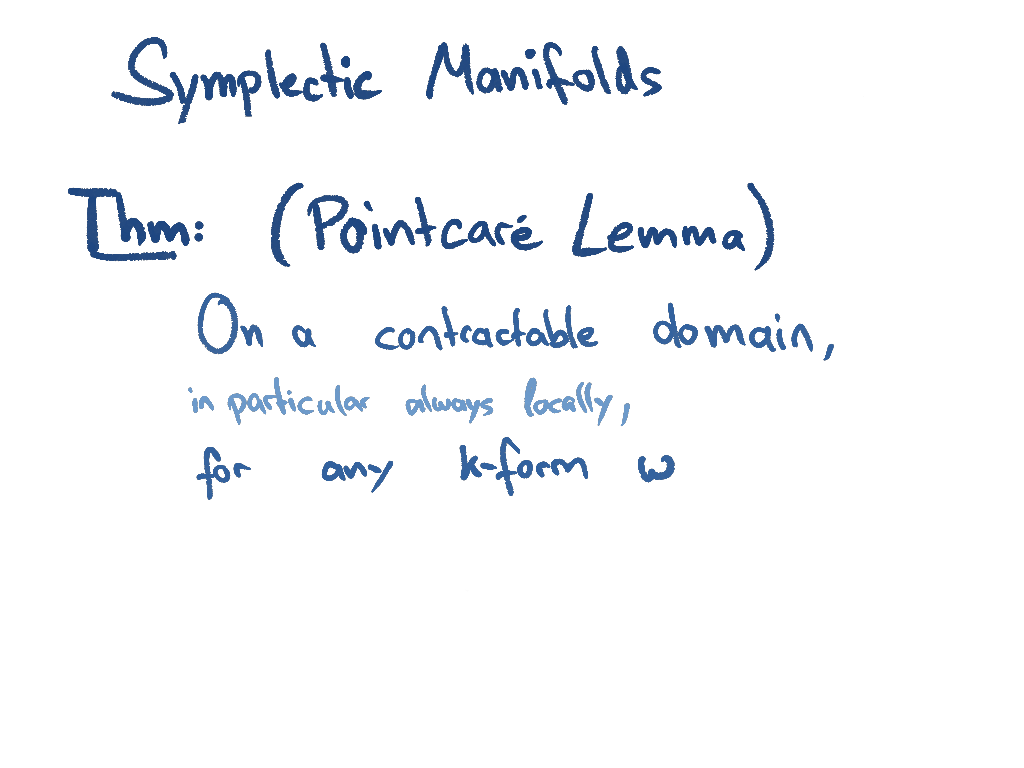 Symplectic Manifolds
Thm: (Pointcaré Lemma)
On a contractable domain,
in particular always locally,
for any k-form ω